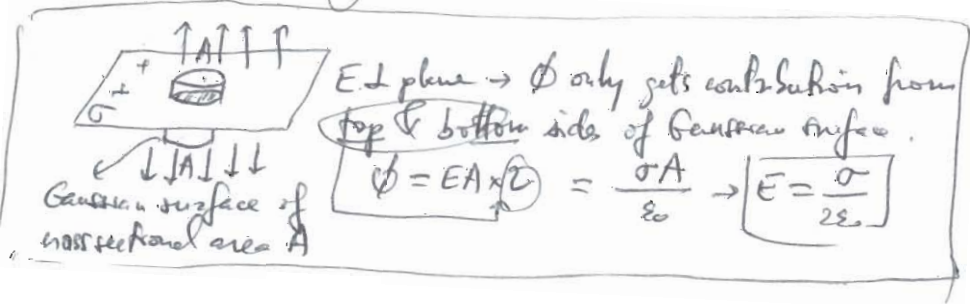 A
+
+
σ
A
Gaussian surface of
cross sectional area A
E ⊥ plane → ϕ only gets contribution from
top & bottom sides of Gaussian surface.
ϕ = EA × 2 = σA/ε₀ → E = σ/2ε₀